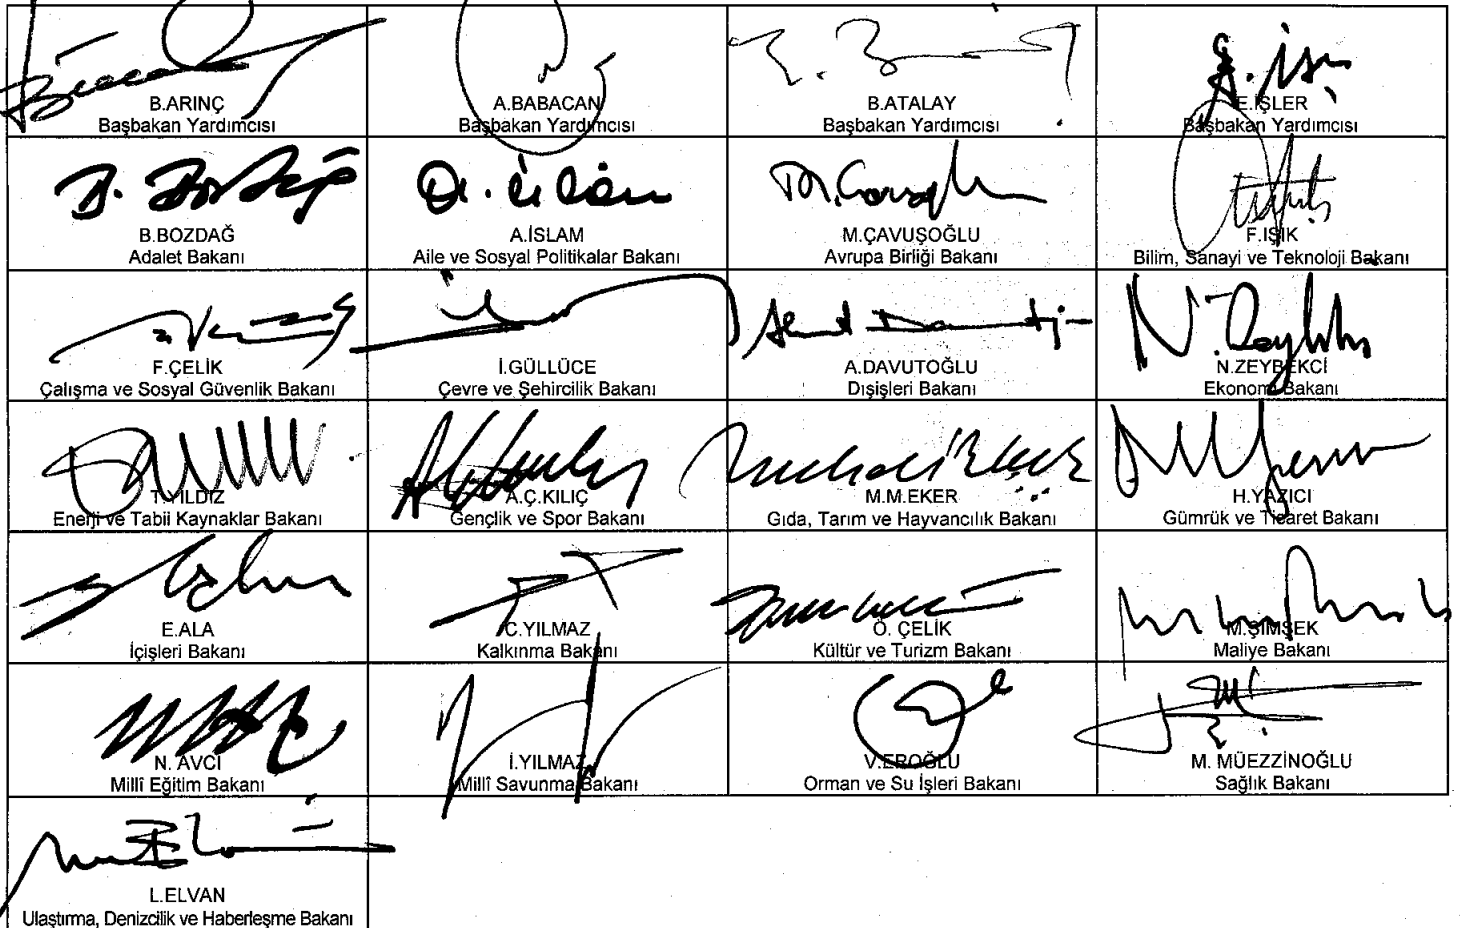 B.ARINÇ
Başbakan Yardımcısı
A.BABACAN
Başbakan Yardımcısı
B.ATALAY
Başbakan Yardımcısı
E.İŞLER
Başbakan Yardımcısı
B.BOZDAĞ
Adalet Bakanı
A.İSLAM
Aile ve Sosyal Politikalar Bakanı
M.ÇAVUŞOĞLU
Avrupa Birliği Bakanı
F.IŞIK
Bilim, Sanayi ve Teknoloji Bakanı
F.ÇELİK
Çalışma ve Sosyal Güvenlik Bakanı
İ.GÜLLÜCE
Çevre ve Şehircilik Bakanı
A.DAVUTOĞLU
Dışişleri Bakanı
N.ZEYBEKCİ
Ekonomi Bakanı
T.YILDIZ
Enerji ve Tabii Kaynaklar Bakanı
A.Ç.KILIÇ
Gençlik ve Spor Bakanı
M.M.EKER
Gıda, Tarım ve Hayvancılık Bakanı
H.YAZICI
Gümrük ve Ticaret Bakanı
E.ALA
İçişleri Bakanı
C.YILMAZ
Kalkınma Bakanı
Ö. ÇELİK
Kültür ve Turizm Bakanı
M.ŞİMŞEK
Maliye Bakanı
N. AVCI
Millî Eğitim Bakanı
İ.YILMAZ
Millî Savunma Bakanı
V.EROĞLU
Orman ve Su İşleri Bakanı
M. MÜEZZİNOĞLU
Sağlık Bakanı
L.ELVAN
Ulaştırma, Denizcilik ve Haberleşme Bakanı